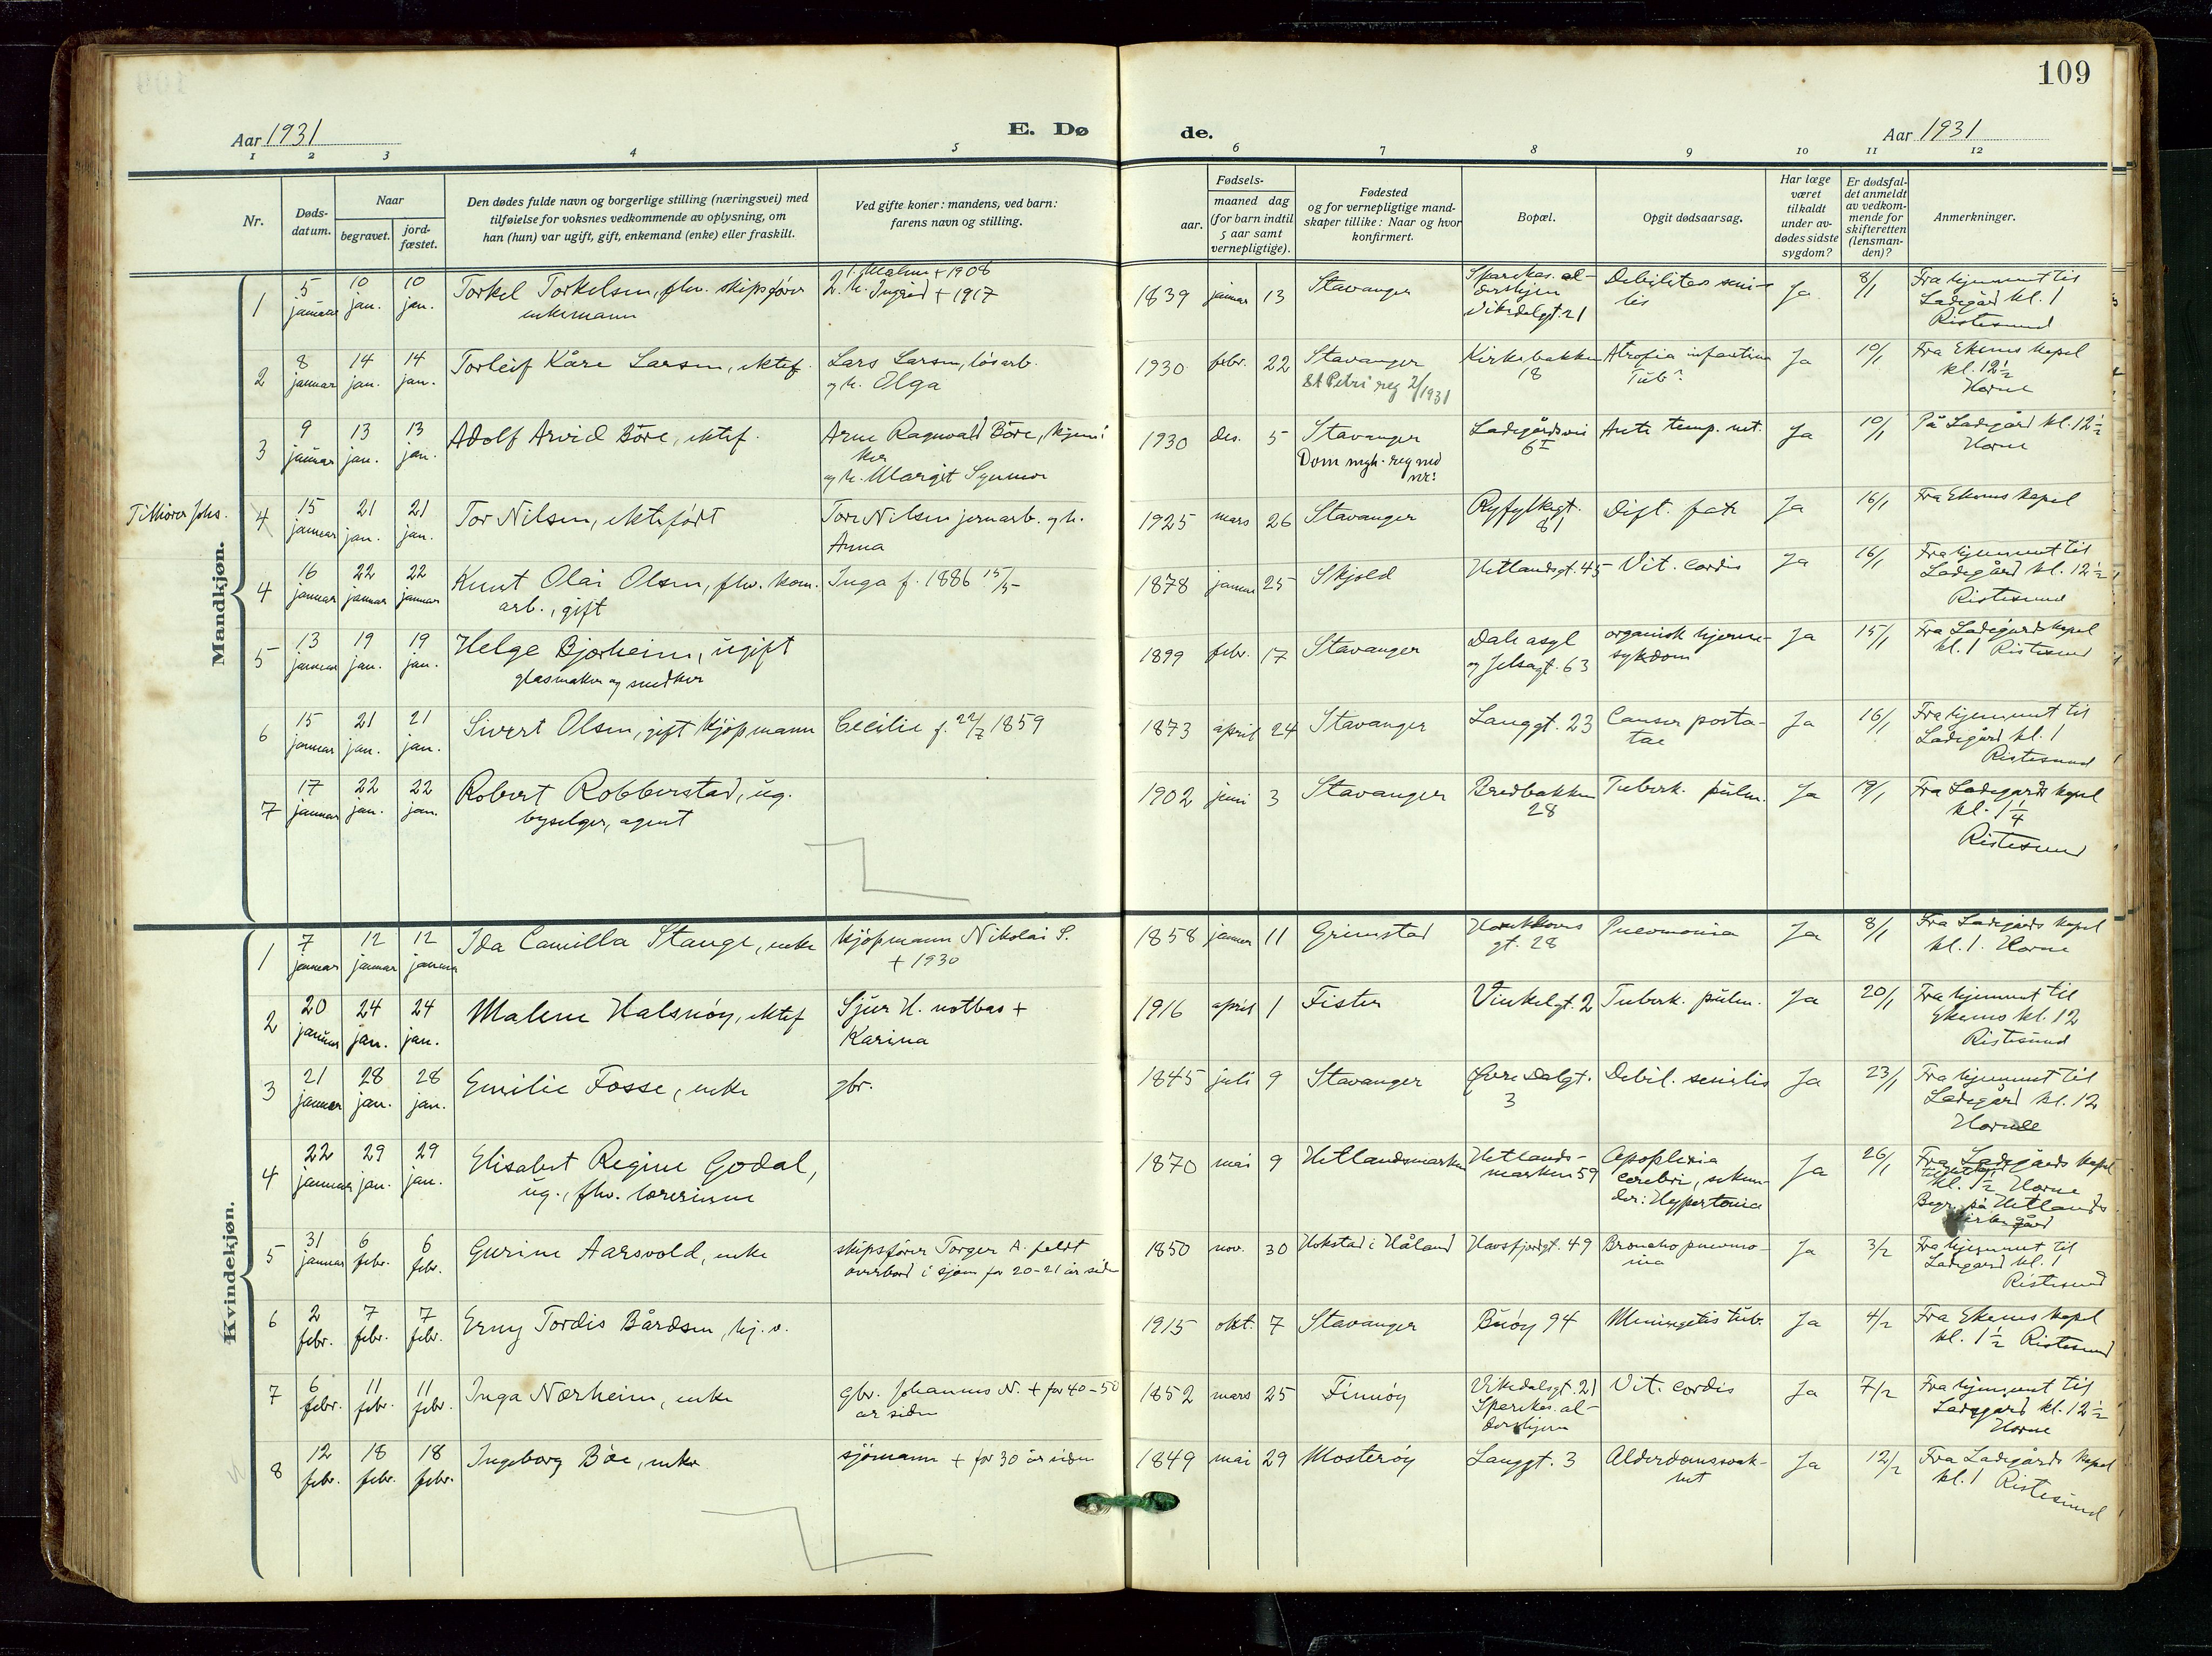 109
Aar 1931
E. Dø
de.
Aar 1931
1 2 3 4 5 6 7 8 9 10 11 12
Nr.
Døds-
datum.
Naar
begravet.
jord-
fæstet.
Den dødes fulde navn og borgerlige stilling (næringsvei) med
tilføielse for voksnes vedkommende av oplysning, om
han (hun) var ugift, gift, enkemand (enke) eller fraskilt.
Ved gifte koner: mandens, ved barn:
farens navn og stilling.
Fødsels-
aar.
maaned dag
(for barn indtil
5 aar samt
vernepligtige).
Fødested
og for vernepligtige mand-
skaper tillike: Naar og hvor
konfirmert.
Bopæl.
Opgit dødsaarsag.
Har læge
været
tilkaldt
under av-
dødes sidste
sygdom?
Er dødsfal-
det anmeldt
av vedkom-
mende for
skifteretten
(lensman-
den)?
Anmerkninger.
Mandkjøn.
1 5 januar 10 jan. 10 jan. Torkel Torkelsen, fhv. skipsfører
enkemann
1. Malene + 1908
2. h. Ingrid + 1917
1839 januar 13 Stavanger Sparekas. al-
dershjem
Vikedalsgt. 21
Debilitas seni-
lis
Ja 8/1 Fra hjemmet til
Ladegård kl. 1
Ristesund
2 8 januar 14 jan. 14 jan. Torleif Kåre Larsen, ektef.
Lars Larsen, løsarb.
og h. Olga
1930 febr. 22 Stavanger
St Petri reg 2/1931
Kirkebakken
18
Atrofia infantum
Tub?
Ja 10/1 Fra Ekenes kapel
kl. 12½
Horne
3 9 januar 13 jan. 13 jan. Adolf Arvid Böre, ektef.
Arne Ragnvald Böre,
og h. Margit Synnøve
1930 des. 5 Stavanger
Dom mgh. reg med
nr:
Ladegårdsvei
6 I
Ja 10/1 På Ladegård kl. 12½
Horne
Tilhører Johs.
4 15 januar 21 jan. 21 jan. Tor Nilsen, ektefødt
Tore Nilsen jernarb. og h.
Anna
1925 mars 26 Stavanger Ryfylkegt.
81
Dift. fau
Ja 16/1 Fra Ekenes kapel
4 16 januar 22 januar 22 januar Knut Olai Olsen, fhv. kom.
arb., gift
Inga f. 1886 15/5
1878 januar 25 Skjold Hetlandsgt. 45 Vit. cordis Ja 16/1 Fra hjemmet til
Ladegård kl. 12½
Ristesund
5 13 januar 19 jan. 19 jan. Helge Bjorheim, ugift
glasmaker og snedker
1899 febr. 17 Stavanger Dale asyl
og Jelsagt. 63
organisk hjerne-
sykdom
Ja 15/1 Fra Ladegårds kapel
kl. 1 Ristesund
6 15 januar 21 jan. 21 jan. Sivert Olsen, gift kjøpmann
Cecilie f. 22/7 1859
1873 april 24 Stavanger Langgt. 23 Cancer posta-
tae
Ja 16/1 Fra hjemmet til
Ladegård kl. 1
Ristesund
7 17 januar 22 jan. 22 jan. Robert Robberstad, ug.
byselger, agent
1902 juni 3 Stavanger Bredbakken
28
Tuberk. pulm. Ja 19/1 Fra Ladegårds kapel
kl. 1¼
Ristesund
Kvindekjøn.
1 7 januar 12 januar 12 januar Ida Camilla Stange, enke
kjøpmann Nikolai S.
+ 1930
1858 januar 11 Grimstad
gt. 28
Pneomonia Ja 8/1 Fra Ladegårds kapel
kl. 1. Horne
2 20 januar 24 jan. 24 jan. Malene Halsnöy, ektef
Sjur H. notbas +
Karina
1916 april 1 Fister Vinkelgt. 2 Tuberk. pulm. Ja 20/1 Fra hjemmet til
Ekenes kl. 12
Ristesund
3 21 januar 28 jan. 28 jan. Emilie Fosse, enke
gbr.
1845 juli 9 Stavanger Øvre Dalgt.
3
Debil. senilis Ja 23/1 Fra hjemmet til
Ladegård kl. 12
Horne
4 22 januar 29 jan. 29 jan. Elisabet Regine Godal,
ug., fhv. lærerinne
1870 mai 9 Hetlandsmarken Hetlands-
marken 59
Apoplexia
cerebri, sekun-
där: Hypertonia
Ja 26/1 Fra Ladegårds kapel
kl. 1½ Horne
Begr. på Hetlands
kirkegård
5 31 januar 6 febr. 6 febr. Gurine Aarsvold, enke
skipsfører Torger A. faldt
overbord i sjøen for 20-21 år siden
1850 nov. 30 Hokstad i Håland Havsfjordgt. 49 Broncho pneumo-
nia
Ja 3/2 Fra hjemmet til
Ladegård kl. 1
Ristesund
6 2 febr. 7 febr. 7 febr. Erny Tordis Bårdsen, hj. v.
1915 okt. 7 Stavanger Buöy 94 Meningitis tub. Ja 4/2 Fra Ekenes kapel
kl. 1½ Ristesund
7 6 febr. 11 febr. 11 febr. Inga Nærheim, enke
gbr. Johannes N. + for 40-50
år siden
1852 mars 25 Finnöy Vikedalsgt. 21
Sparekas. al-
dershjem
Vit. cordis Ja 7/2 Fra hjemmet til
Ladegård kl. 12½
Horne
8 12 febr. 18 febr. 18 febr. Ingeborg Böe, enke
sjömann + for 30 år siden
1849 mai 29 Mosteröy Langgt. 3 Alderdomssvak-
het
Ja 12/2 Fra Ladegårds kapel
kl. 1 Ristesund